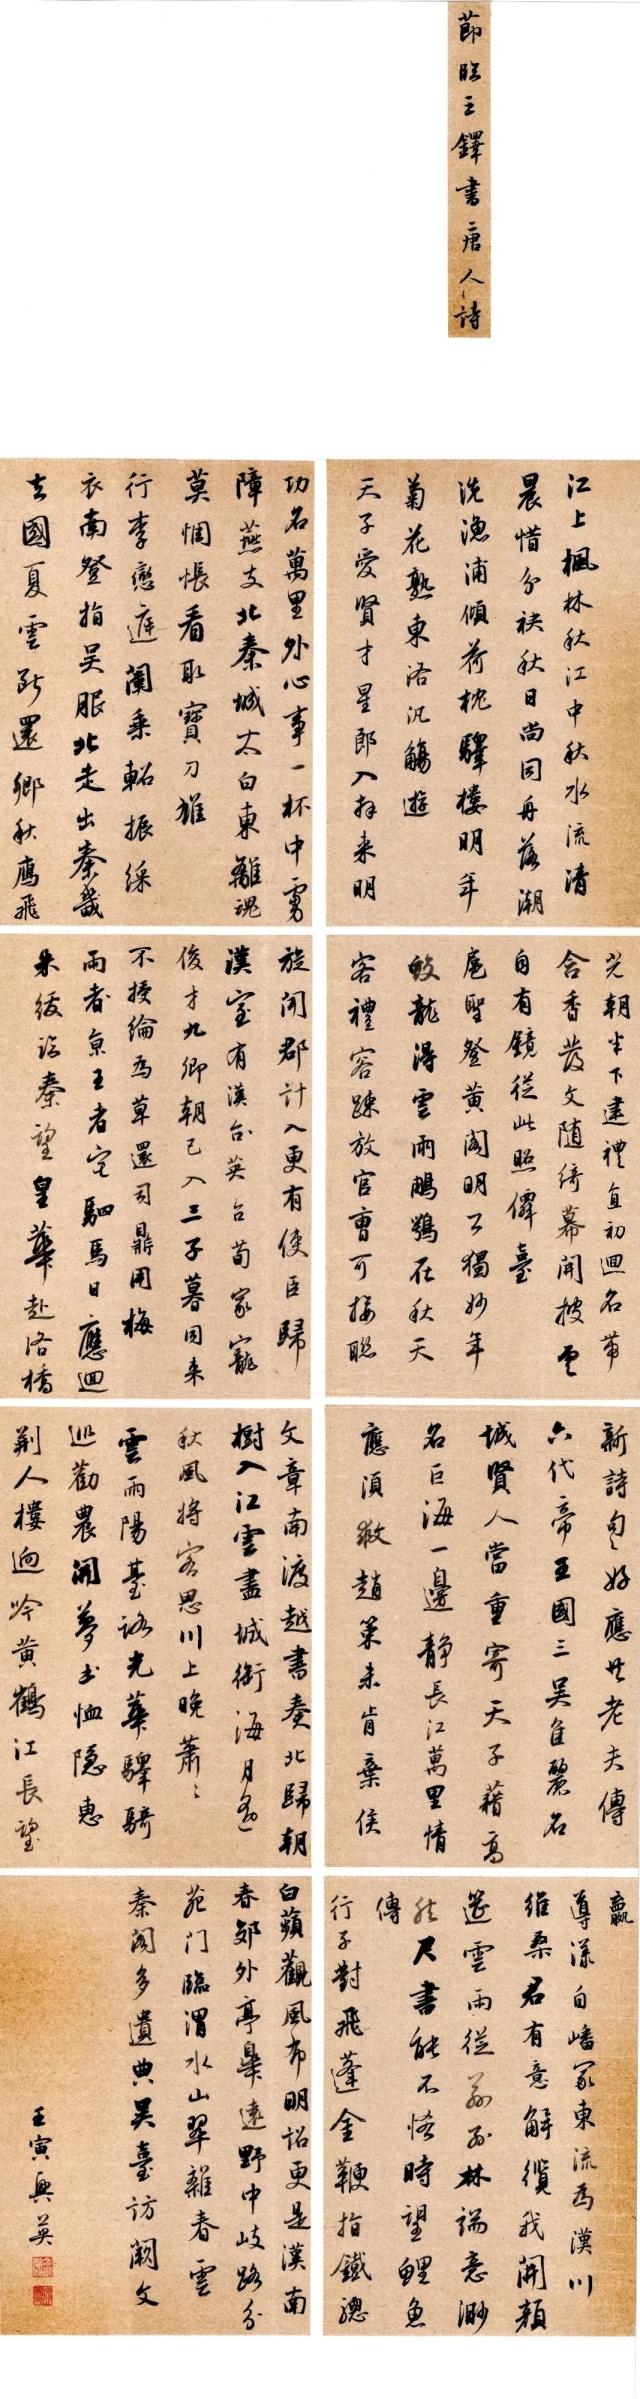 節臨王鐸書唐人詩
江上楓林秋江中秋水流清
晨惜分袂秋日尚同舟落潮
洗漁浦傾荷枕驛樓明年
菊花熟東洛汎觴遊
天子愛賢才星郎入拜來明
光朝半下建禮直初迴名帶
含香發文隨綺幕開披雲
自有鏡從此照僚臺
扈聖登黃閣明公獨妙年
蛟龍得雲雨鵰鶚在秋天
客禮容疎放官曹可接聯
新詩句〻好應共老夫傳
六代帝王國三吳佳麗名
城賢人當重寄天子藉高
名巨海一邊靜長江萬里情
應須救趙策未肯棄侯
嬴
導漾自嶓冢東流為漢川
維桑君有意解纜我開顏
筵雲雨從茲別林端意渺
然尺書能不悋時望鯉魚
傳
行子對飛蓬金鞭指鐵驄
功名萬里外心事一杯中虜
障燕支北秦城太白東離魂
莫惆悵看取寶刀雄
行李戀庭闈乘軺振綵
衣南登指吳服北走出秦畿
去國夏雲斷還鄉秋鴈飛
旋聞郡計入更有使臣歸
漢室有漢台英台荀家寵
俊才九卿朝已入三子暮同來
不授綸為草還司鼎用梅
兩者京王者宅駟馬日應迴
朱紱臨秦望皇華赴洛橋
文章南渡越書奏北歸朝
樹入江雲盡城銜海月遙
秋風將客思川上晚蕭〻
雲雨陽臺路光華驛騎
巡勸農開夢土恤隱惠
荊人樓迥吟黃鶴江長望
白蘋觀風布明詔更是漢南
春郊外亭皋遠野中岐路分
苑門臨渭水山翠雜春雲
秦閣多遺典吳臺訪闕文
壬寅興英